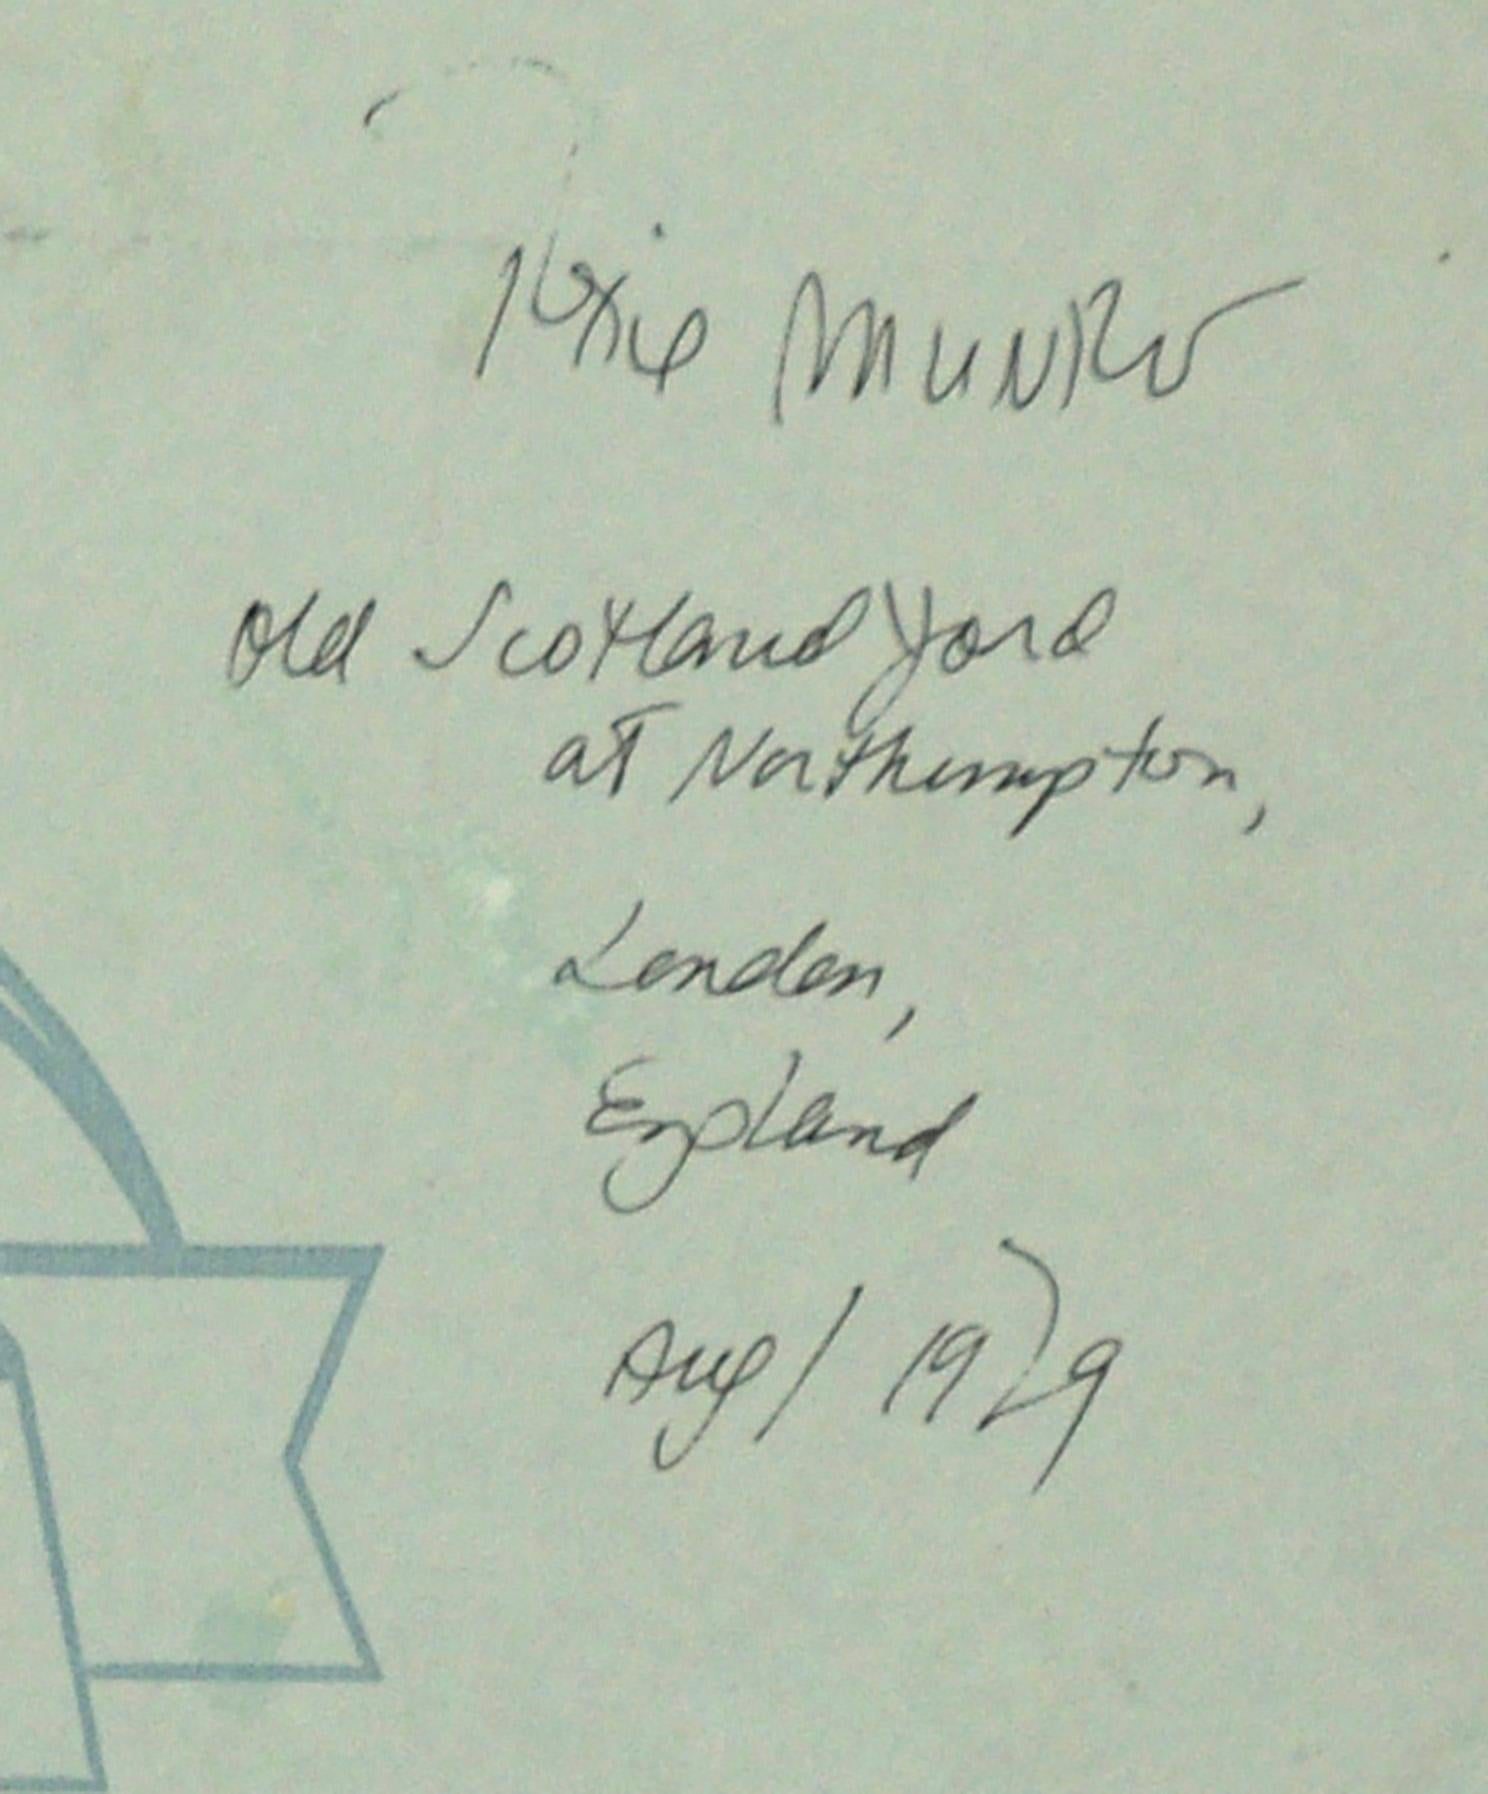 Roxie Munro
Old Scotland Yard
at Northumpton,
London,
England
Aug/ 1979